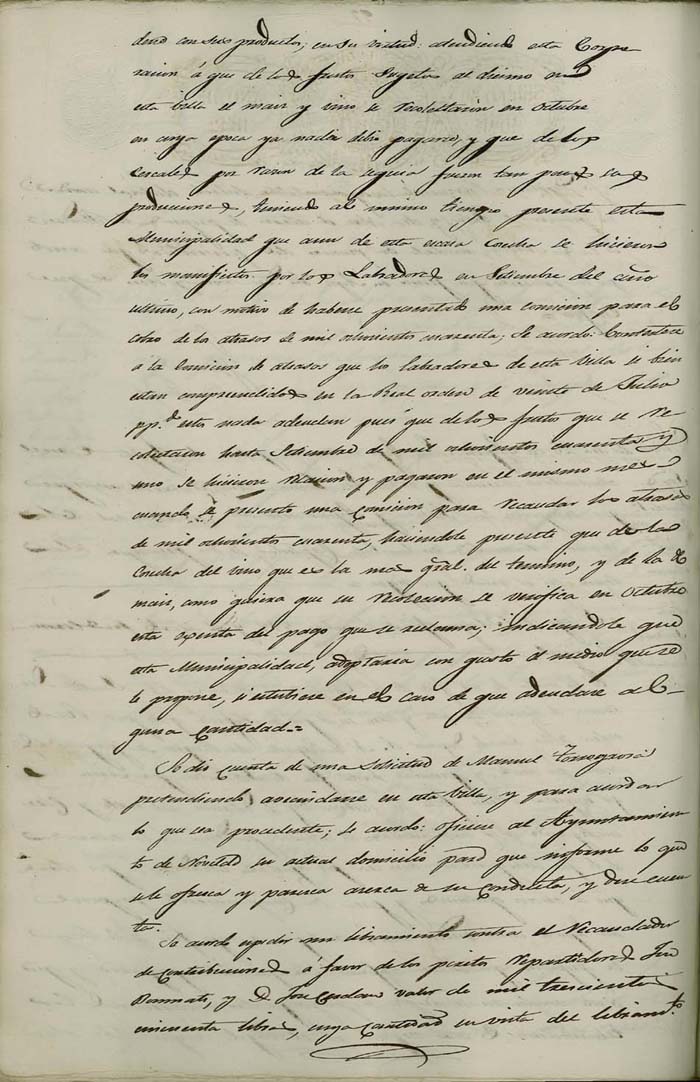 dono con sus productos; en su virtud: atendiendo esta Corpo
racion á que de los frutos sugetos al diezmo en
esta billa el mair y vino se recolectaron en Octubre
en cuya epoca ya nadie debio pagarse, y que de los
cereales por razon de la sequia fueron tan pocas las
producciones, teniendo al mismo tiempo presente esta
Municipalidad que aun de esta escasa Cosecha se hicieron
los manifiestos por los Labradores en Setiembre del año
ultimo, con motivo de haberse presentado una comision para el
cobro de los atrasos de mil ochocientos cuarenta; Se acordo: Contestar
á la Comision de atrasos que los labradores de esta Villa si bien
estan comprendidos en la Real orden de veinte de Julio
pp.do esta nada adeudan pues que de los frutos que se re
colectaron hasta Setiembre de mil ochocientos cuarenta y
uno se hicieron relacion y pagaron en el mismo mes
cuando se presento una Comision para recaudar los atrasos
de mil ochocientos cuarenta, haciendole presente que de la
Cosecha del vino que es la mas gral. del termino, y de la de
mair, como quiera que su recoleccion se verifica en Octubre
esta esenta del pago que se reclama; indicandole que
esta Municipalidad, adoptaria con gusto el medio que se
le propone, si estubiere en el caso de que adeudare al
guna Cantidad.=
Se dio cuenta de una Solicitud de Manuel
pretendiendo avecindarse en esta Villa, y para acordar
lo que sea procedente; se acordo: oficiese al Ayuntamien
to de Novelda su actual domicilio para que informe lo que
se le ofresca y paresca acerca de su Conducta, y dese cuen
ta.
Se acordo espedir un libramiento contra el Recaudador
de Contribuciones á favor de los peritos Repartidores José
y D. José valor de mil trescientas
cincuenta libras, cuya Cantidad en vista del libram.to